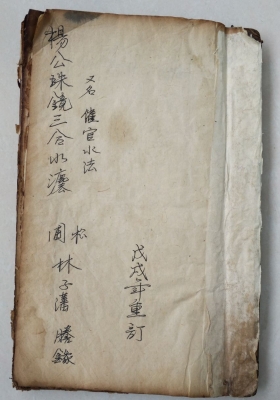 戊戌年重訂
又名 催官水法
楊公珠鏡三合水瀍
松
園 林子藩 謄錄